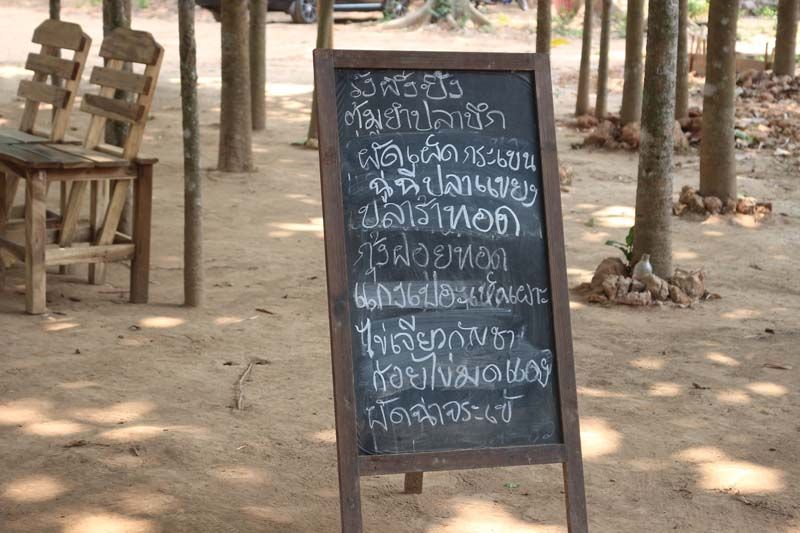 รังผึ้งปิ้ง
ตุ้มยำปลาบึก
ผัดเผ็ดกระเบน
ฉู่ฉี่ปลาแขยง
ปลาร้าทอด
กุ้งฝอยทอด
แกงเปอะเห็ดเผาะ
ไข่เจียวกัญชา
ก้อยไข่มดแดง
ผัดฉ่าจระเข้